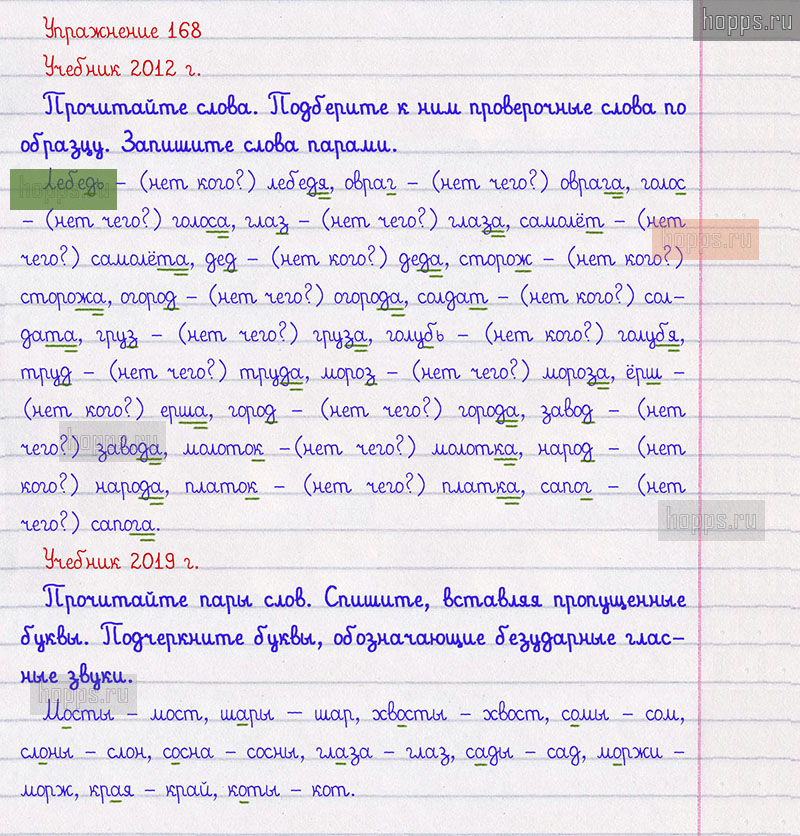 hopps.ru
Упражнение 168
Учебник 2012 г.
Прочитайте слова. Подберите к ним проверочные слова по
образцу. Запишите слова парами.
Лебедь – (нет кого?) лебедя, овраг – (нет чего?) оврага, голос
– (нет чего?) голоса, глаз – (нет чего?) глаза, самолёт – (нет
чего?) самолёта, дед – (нет кого?) деда, сторож – (нет кого?)
сторожа, огород – (нет чего?) огорода, солдат – (нет кого?) сол-
дата, груз – (нет чего?) груза, голубь – (нет кого?) голубя,
труд – (нет чего?) труда, мороз – (нет чего?) мороза, ёрш –
(нет кого?) ерша, город – (нет чего?) города, завод – (нет
чего?) завода, молоток –(нет чего?) молотка, народ – (нет
кого?) народа, платок – (нет чего?) платка, сапог – (нет
чего?) сапога.
Учебник 2019 г.
Прочитайте пары слов. Спишите, вставляя пропущенные
буквы. Подчеркните буквы, обозначающие безударные глас-
ные звуки.
Мосты – мост, шары — шар, хвосты – хвост, сомы – сом,
слоны – слон, сосна – сосны, глаза – глаз, сады – сад, моржи –
морж, края – край, коты – кот.
hopps.ru
hopps.ru
hopps.ru
hopps.ru
hopps.ru